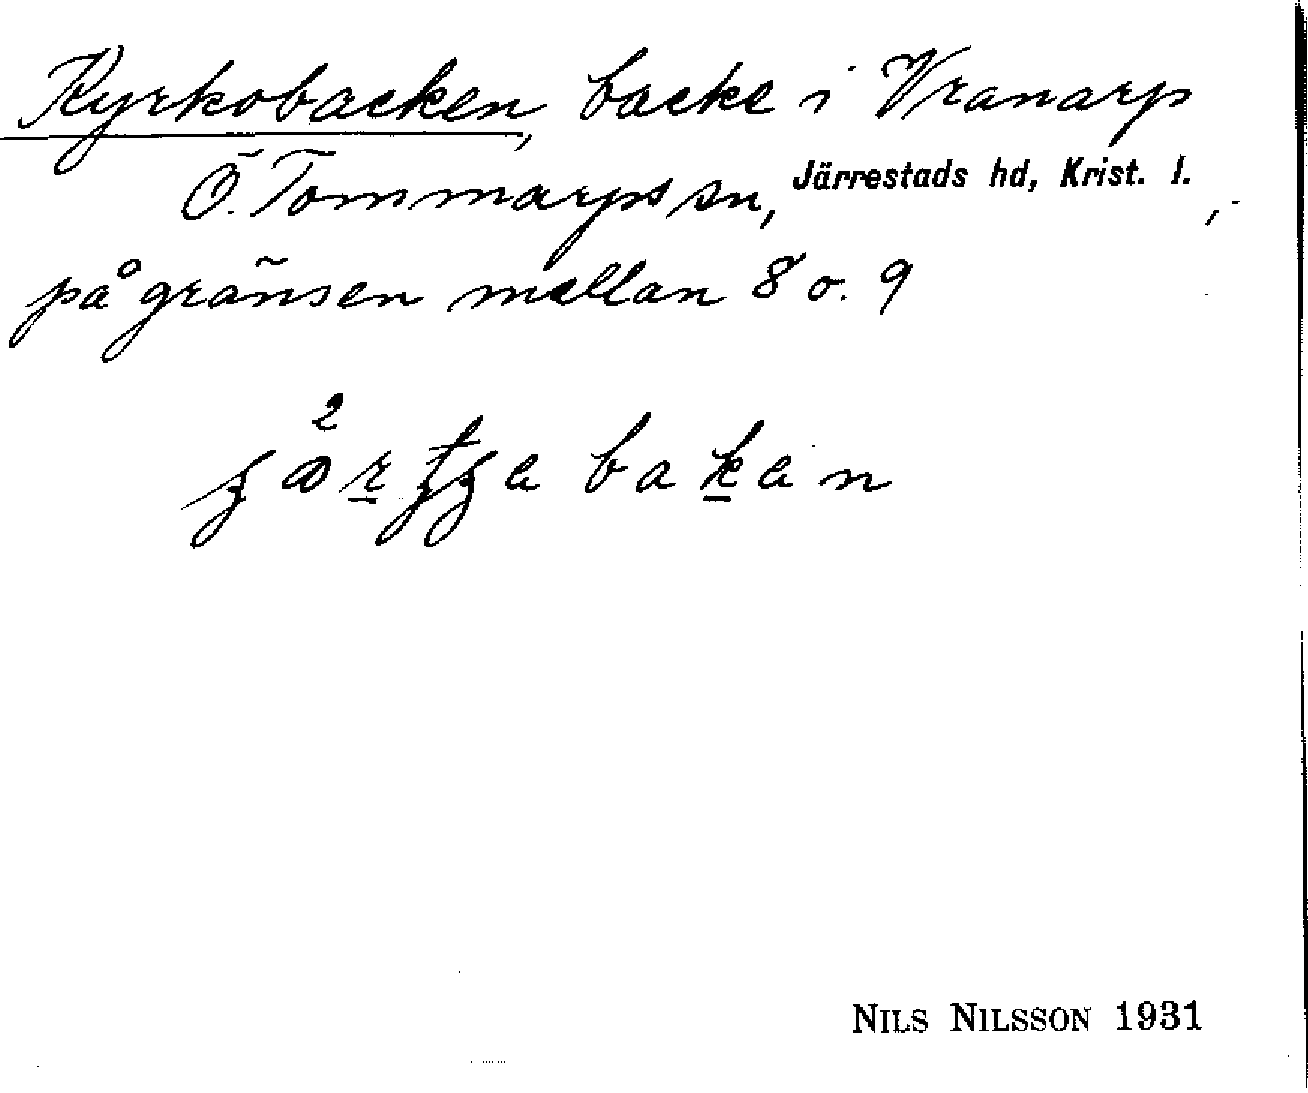 Kyrkobacken, backe i Vranarp
Ö. Tommarps sn, Järrestads hd, Krist. l.,
på gränsen mellan 8 o. 9
NILS NILSSON 1931